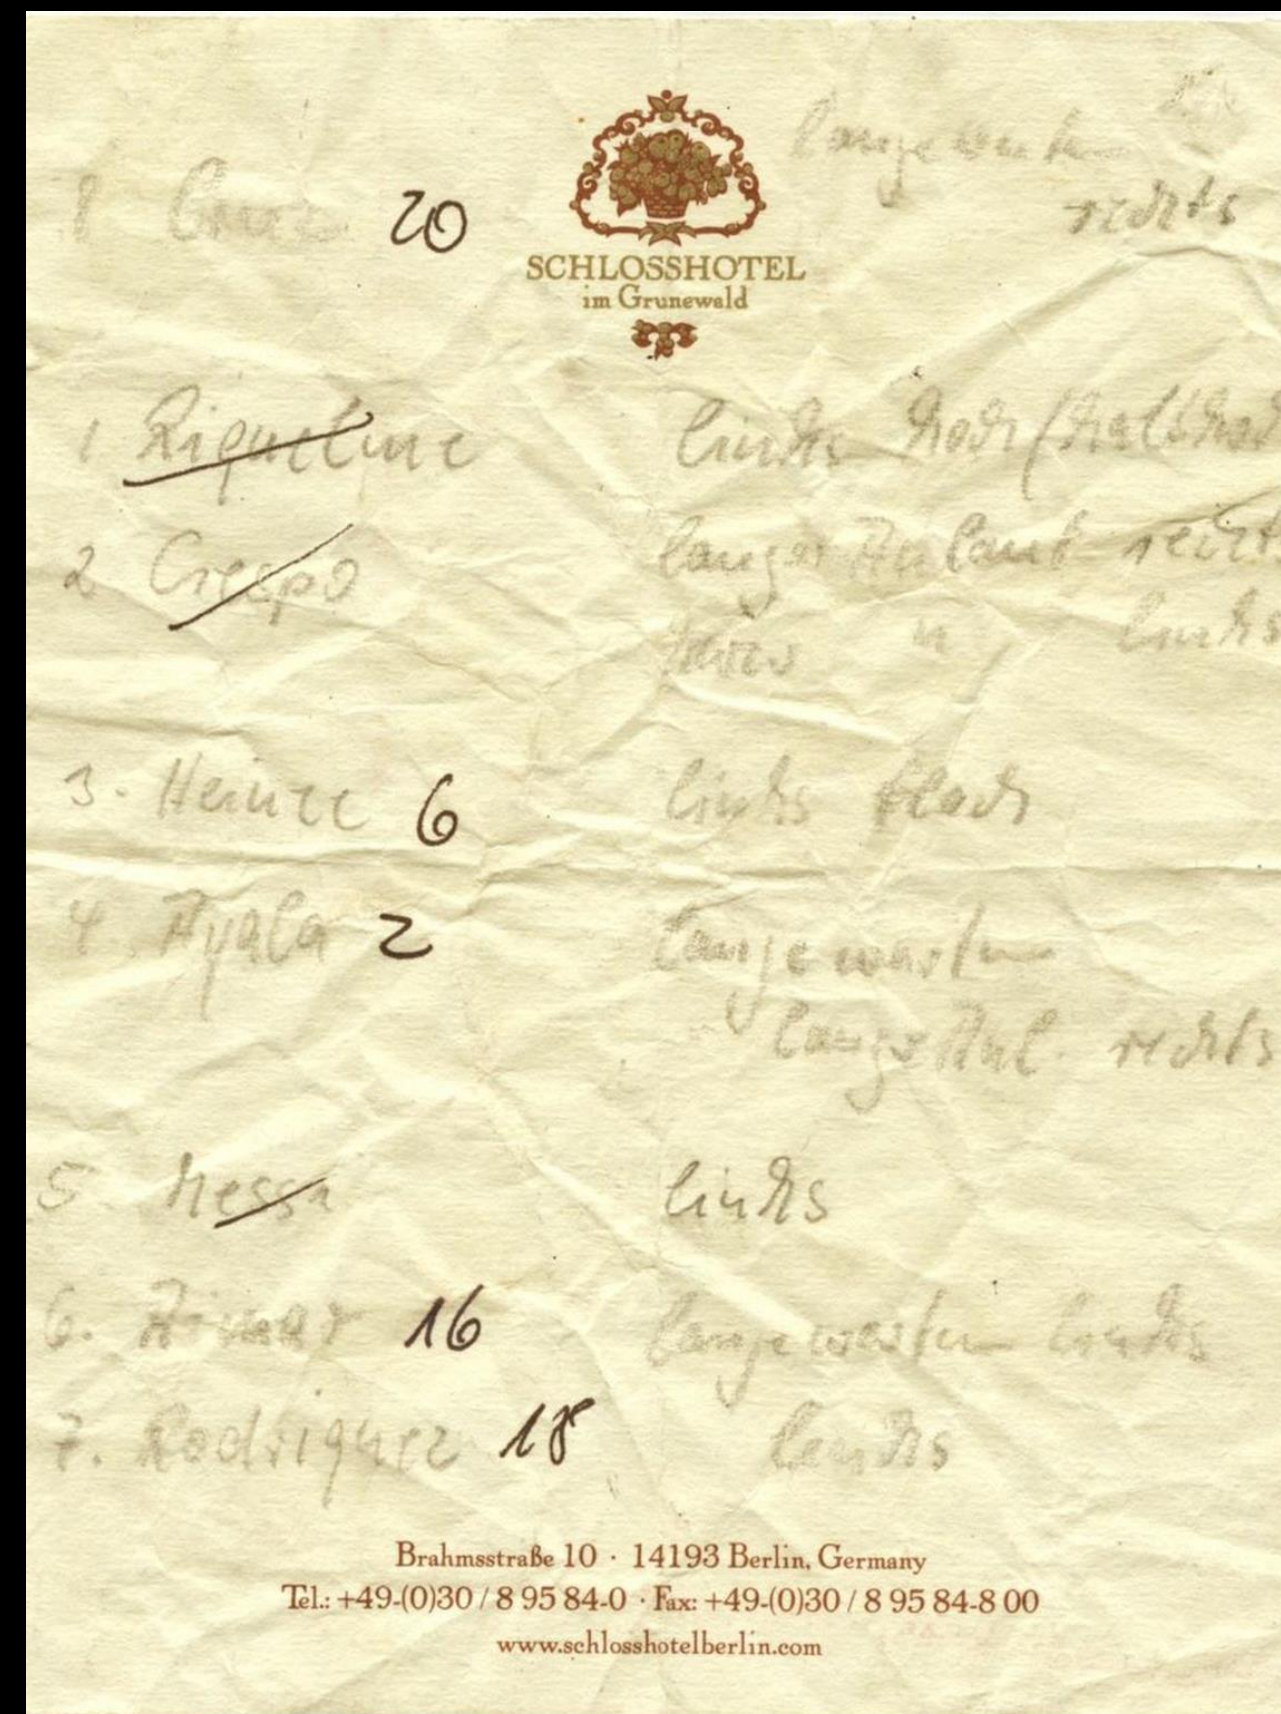 lange warten
8 Cruz 20
rechts
SCHLOSSHOTEL
im Grunewald
1 Riquelme links hoch
2 Crespo langer Anlauf rechts
kurz " links
3. Heinze 6 links flach
4. Ayala 2 lange warten
langer Anl. rechts
5 Messi links
6. Aimar 16 lange warten links
7. Rodriguez 18 links
Brahmsstraße 10 · 14193 Berlin, Germany
Tel.: +49-(0)30 / 8 95 84-0 · Fax: +49-(0)30 / 8 95 84-8 00
www.schlosshotelberlin.com